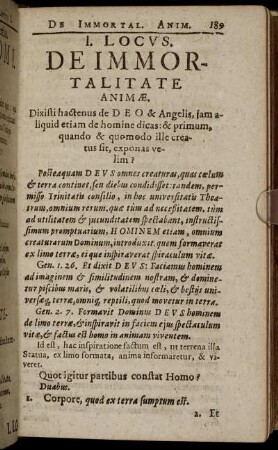 DE IMMORTAL. ANIM. 189
I. LOCVS.
DE IMMOR-
TALITATE
ANIMÆ.
Dixisti hactenus de DEO & Angelis, jam a-
liquid etiam de homine dicas: & primum,
quando & quomodo ille crea-
tus sit, exponas ve-
lim?
Posteaquam DEUS omnes creaturas, quas cœlum
& terra continet, seu diebus condidisset: tandem, per-
misso Trinitatis consilio, in hoc universitatis Thea-
trum, omnium rerum, quæ tum ad necessitatem, tum
ad utilitatem & jucunditatem spectabant, instructis-
simum promptuarium, HOMINEM etiam, omnium
creaturarum Dominum, introduxit, quem formaverat
ex limo terræ, eique inspiraverat spiraculum vitæ.
Gen. 1. 26. Et dixit DEUS: Faciamus hominem
ad imaginem & similitudinem nostram, & domine-
tur piscibus maris, & volatilibus cœli, & bestijs uni-
versæq́, terræ, omniq́, reptili, quod movetur in terra.
Gen. 2. 7. Formavit Dominus DEUS hominem
de limo terræ, & inspiravit in faciem ejus spectaculum
vitæ, & factus est homo in animam viventem.
Id est, hac inspiratione factum est, ut terrena illa
Statua, ex limo formata, anima informaretur, & vi-
veret.
Quot igitur partibus constat Homo?
Duabus.
1. Corpore, quod ex terra sumptum est.
2. Et